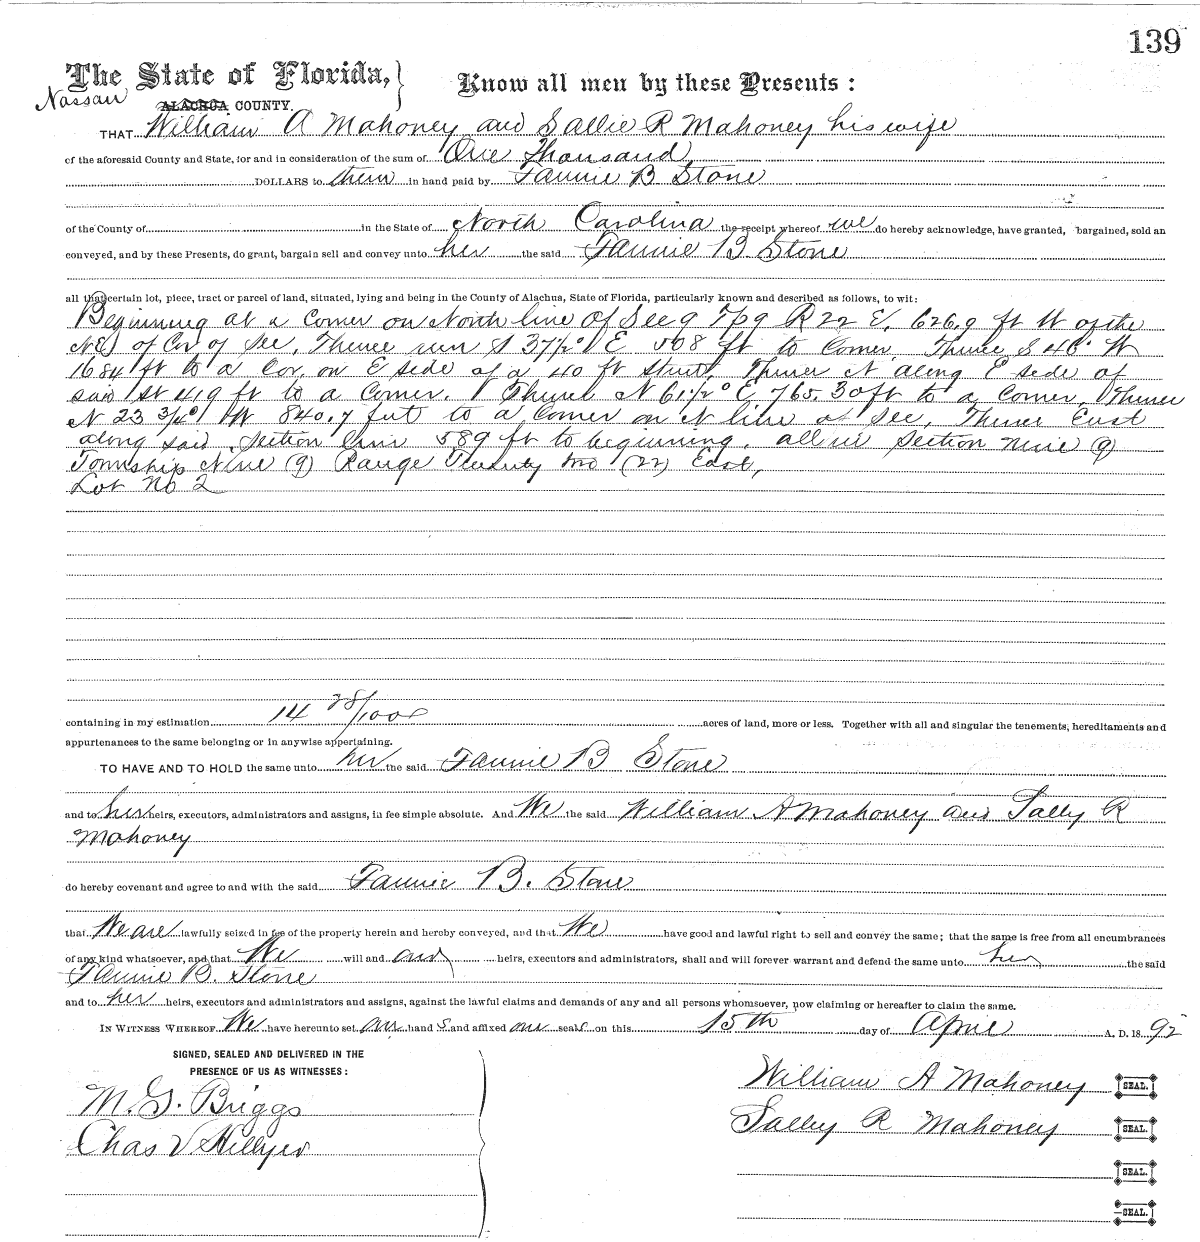 139
The State of Florida,
Know all men by these Presents:
Nassau ALACHUA COUNTY.
THAT William A Mahoney and Sallie R Mahoney his wife
of the aforesaid County and State, for and in consideration of the sum of One Thousand
DOLLARS to them in hand paid by Fannie B Stone
of the County of in the State of North Carolina the receipt whereof we do hereby acknowledge, have granted, bargained, sold an
conveyed, and by these Presents, do grant, bargain sell and convey unto her the said Fannie B Stone
all that certain lot, piece, tract or parcel of land, situated, lying and being in the County of Alachua, State of Florida, particularly known and described as follows, to wit:
Beginning at a Corner on North line of Sec 9 Tp 9 R 22 E, 626.9 ft W of the
NE of Cor of Sec, Thence run S 37 1/2° E 508 ft to Corner, Thence S 46° W
1684 ft to a Cor. on E side of a 40 ft street, Thence N along E side of
said St 419 ft to a Corner. Thence N 61 1/2° E, 765.30 ft to a Corner, Thence
N 23 3/4° W 840.7 feet to a Corner on N line of Sec, Thence East
along said Section line 589 ft to beginning, all in Section Nine (9)
Township Nine (9) Range Twenty two (22) East,
Lot No 2
containing in my estimation 14 28/1000 acres of land, more or less. Together with all and singular the tenements, hereditaments and
appurtenances to the same belonging or in anywise appertaining.
TO HAVE AND TO HOLD the same unto her the said Fannie B Stone
and to her heirs, executors, administrators and assigns, in fee simple absolute. And We the said William A Mahoney and Sally R
Mahoney
do hereby covenant and agree to and with the said Fannie B. Stone
that We are lawfully seized in fee of the property herein and hereby conveyed, and that We have good and lawful right to sell and convey the same; that the same is free from all encumbrances
of any kind whatsoever, and that We will and our heirs, executors and administrators, shall and will forever warrant and defend the same unto her the said
Fannie B. Stone
and to her heirs, executors and administrators and assigns, against the lawful claims and demands of any and all persons whomsoever, now claiming or hereafter to claim the same.
IN WITNESS WHEREOF We have hereunto set our hand s and affixed our seals on this 15th day of April A. D. 18 92
SIGNED, SEALED AND DELIVERED IN THE
PRESENCE OF US AS WITNESSES:
William A Mahoney SEAL.
M. G. Briggs
Sally R Mahoney SEAL.
Chas V Hillyer
SEAL.
SEAL.